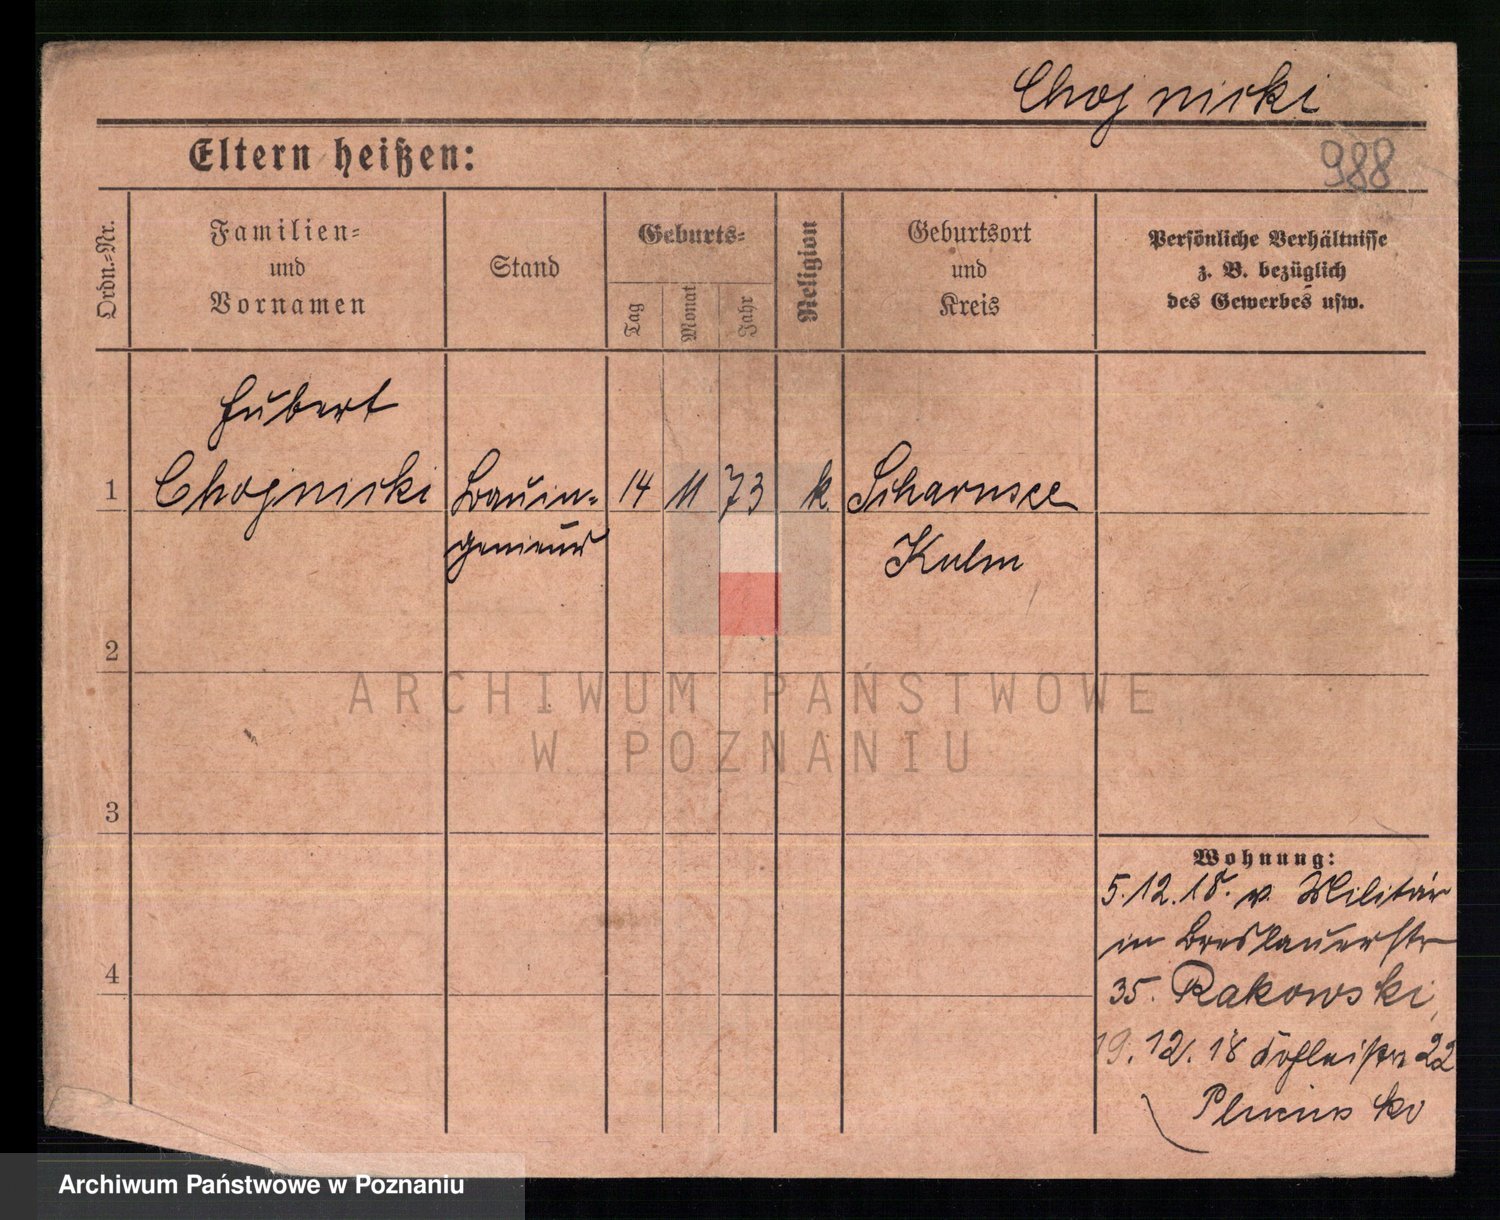 Chojnicki
988
Eltern heißen:
Ordn.-Nr.
Familien-
und
Vornamen
Stand
Geburts-
Tag
Monat
Jahr
Religion
Geburtsort
und
Kreis
Persönliche Verhältnisse
z. B. bezüglich
des Gewerbes usw.
Hubert
1 Chojnicki Bauin- 14 11 73 k. Scharnsee
genieur Kulm
2
3
4
Wohnung:
5.12.18. v. Militär
in Breslauerstr
35. Rakowski,
19.12.18 22
ARCHIWUM PAŃSTWOWE
W POZNANIU
Archiwum Państwowe w Poznaniu